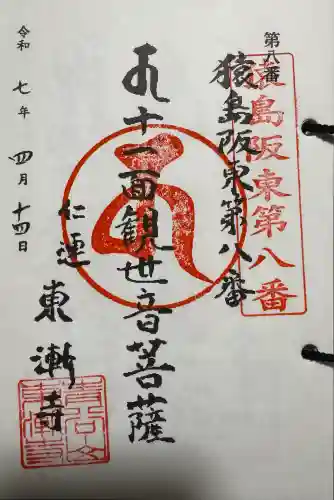 第八番
猿島阪東第八番
猿島阪東第八番
十一面観世音菩薩
仁連
東漸寺
令和七年四月十四日